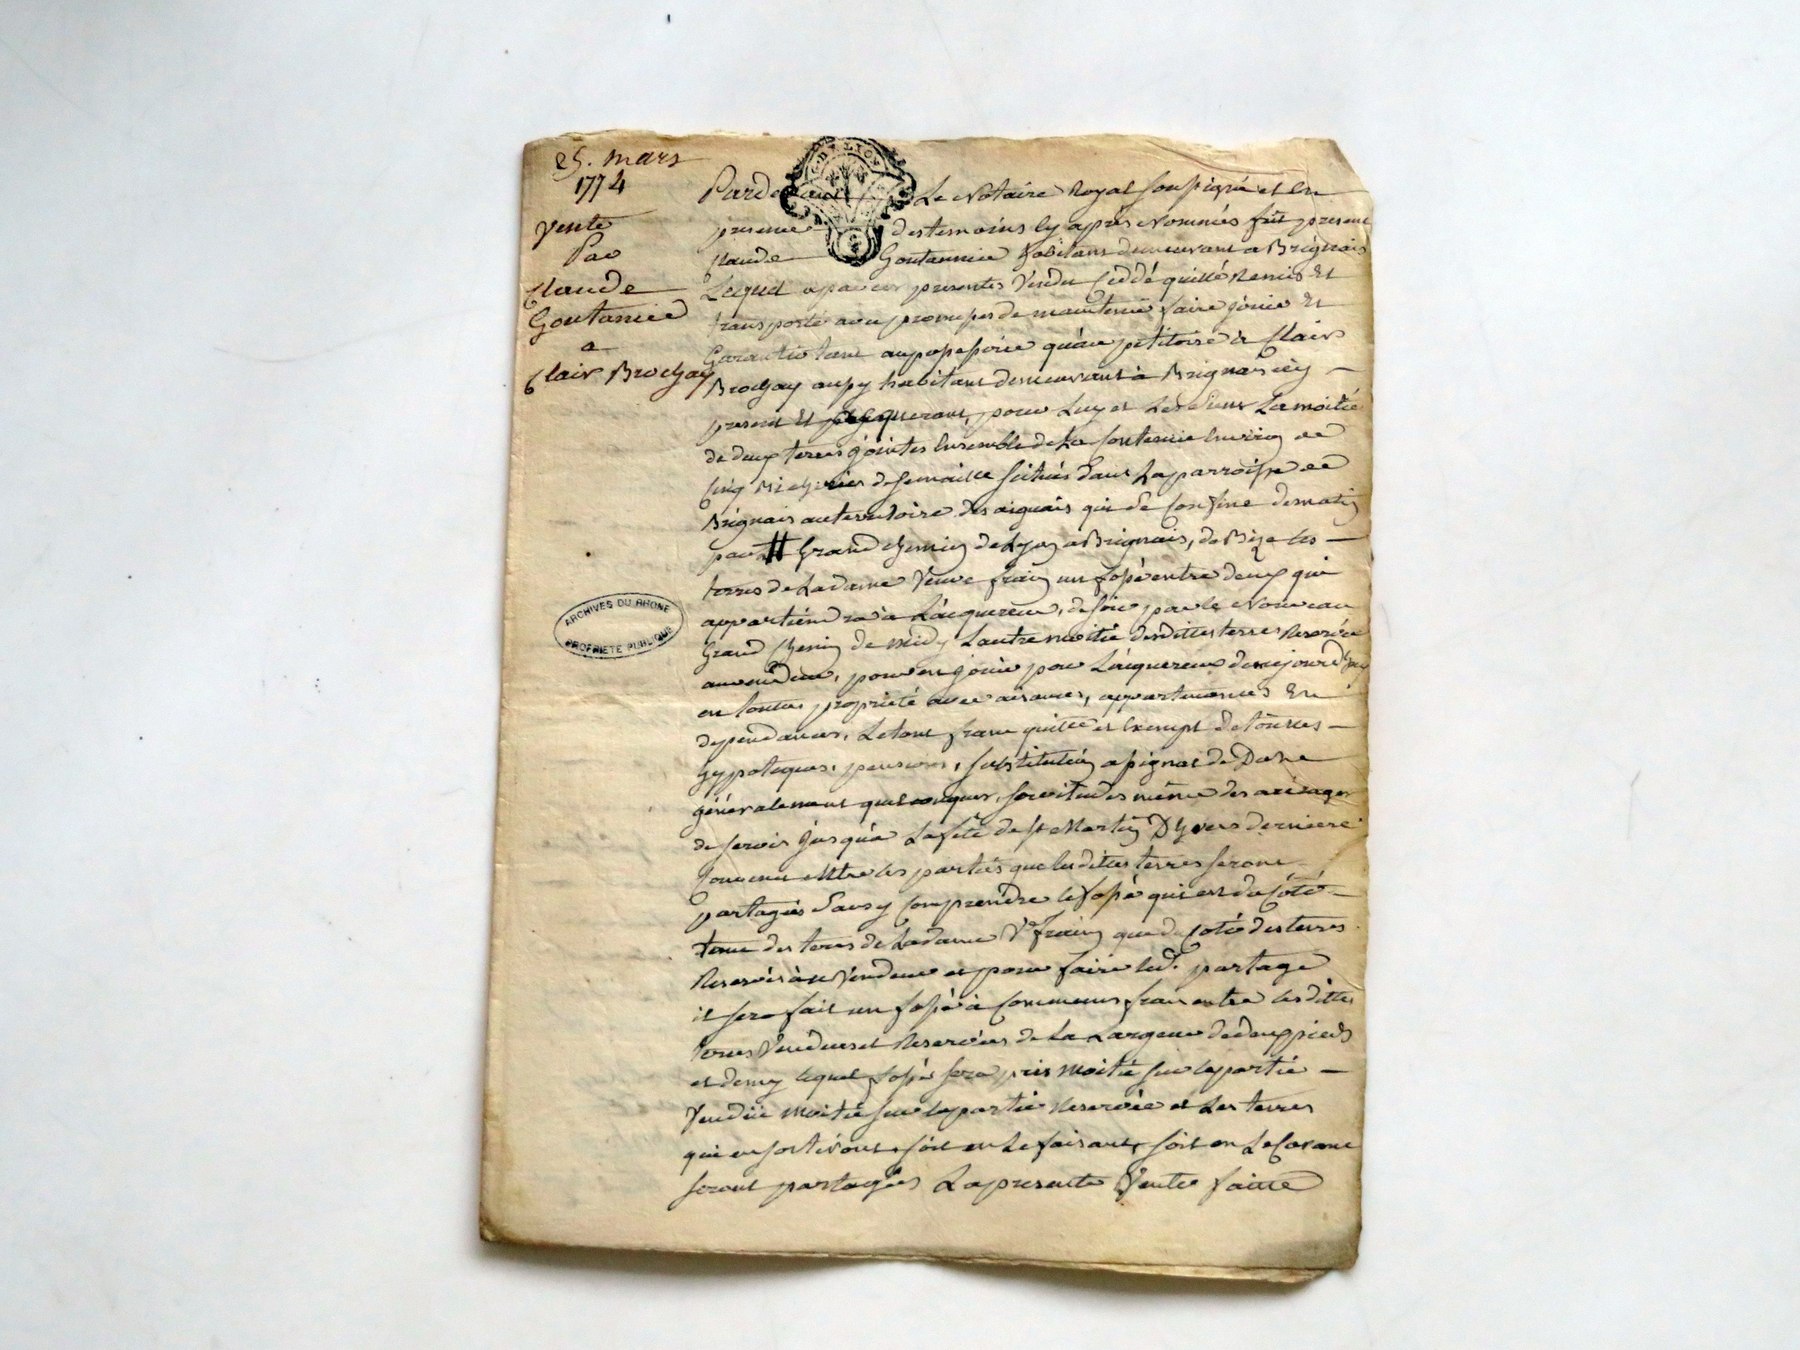 25. mars
1774
Vente
Par
Claude
Goutanier
a
Clair Brochay
DE LYON
ARCHIVES DU RHONE
PROPRIETE PUBLIQUE
Pardevant Le Notaire Royal soussigné et en
presence des temoins cy après nommés fût present
Claude Goutannier habitant demeurant a Brignais
Lequel a par ces presentes Vendu Ceddé quitté Remis Et
transporté avec promesses de maintenir faire jouir Et
Garantir tant au possessoire qu'au petitoire à Clair
Brochay aussy habitant demeurant à Brignais icy
present Et acquerant, pour Luy et Les siens La moitié
de deux terres jointes Ensemble de La Contenue Environ de
Cinq Bicherées de semaille situés dans La parroisse de
Brignais au territoire des aiguais qui se Confine de matin
par Grand chemin de Lyon a Brignais, de Bize les
terres de La dame Veuve frain un fossé entre deux qui
appartiendra à L'acquereur, de soir par le Nouveau
Grand chemin de midy L'autre moitié desdittes terres Reservée
au vendeur, pour en jouir par L'acquereur demejourd'huy
en toutte propriété avec aisances, appartenances Et
dependances, Le tout franc quitte et Exempt de touttes
hypoteques, pensions, substitution assignat de Darre
généralement quelconques, servitudes même des arrerages
de servis jusqu'à La fête de St Martin D'hyvers derniere
Convenu entre les parties que lesdittes terres seront
partagées Sans y Comprendre le fossé qui est du Côté
des terres de La dame Ve frain que du Coté des terres
Reservées au Vendeur et pour faire led. partage
il sera fait un fossé à Communs frais entre les dittes
terres Vendues et Reservées de La Largeur de deux pieds
et demy lequel fossé sera pris moitié sur la partie
Vendüe moitié sur la partie Reservée et Les terres
qui en sortiront, soit en Le faisant, soit en Le Curant
seront partagées La presente Vente faitte